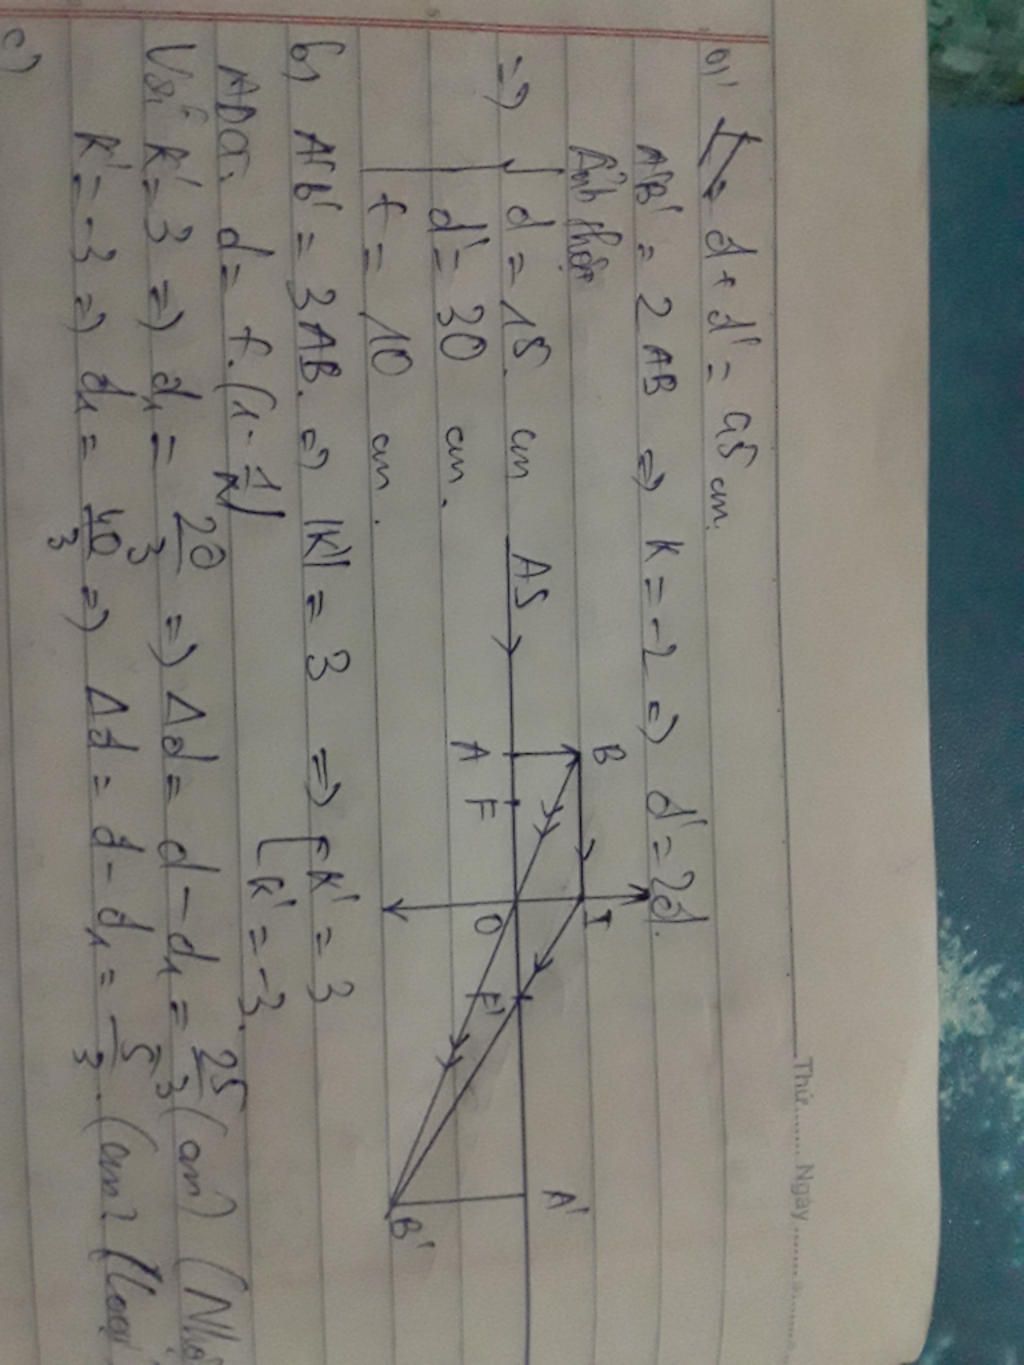 Thứ......... Ngày.........
a)
d + d' = 45 cm.
A'B' = 2 AB => K = -2 => d' = 2d.
Ảnh thật
=> d = 15 cm
d' = 30 cm.
f = 10 cm.
AS
B
I
A
F
O
F'
A'
B'
b) A'B' = 3AB. => |K'| = 3 => [ K' = 3
K' = -3.
ADCT: d = f.(1 - 1/K')
Với K' = 3 => d₁ = 20/3 => Δd = d - d₁ = 25/3 (cm)
K' = -3 => d₁ = 40/3 => Δd = d - d₁ = 5/3 (cm) (loại
c)